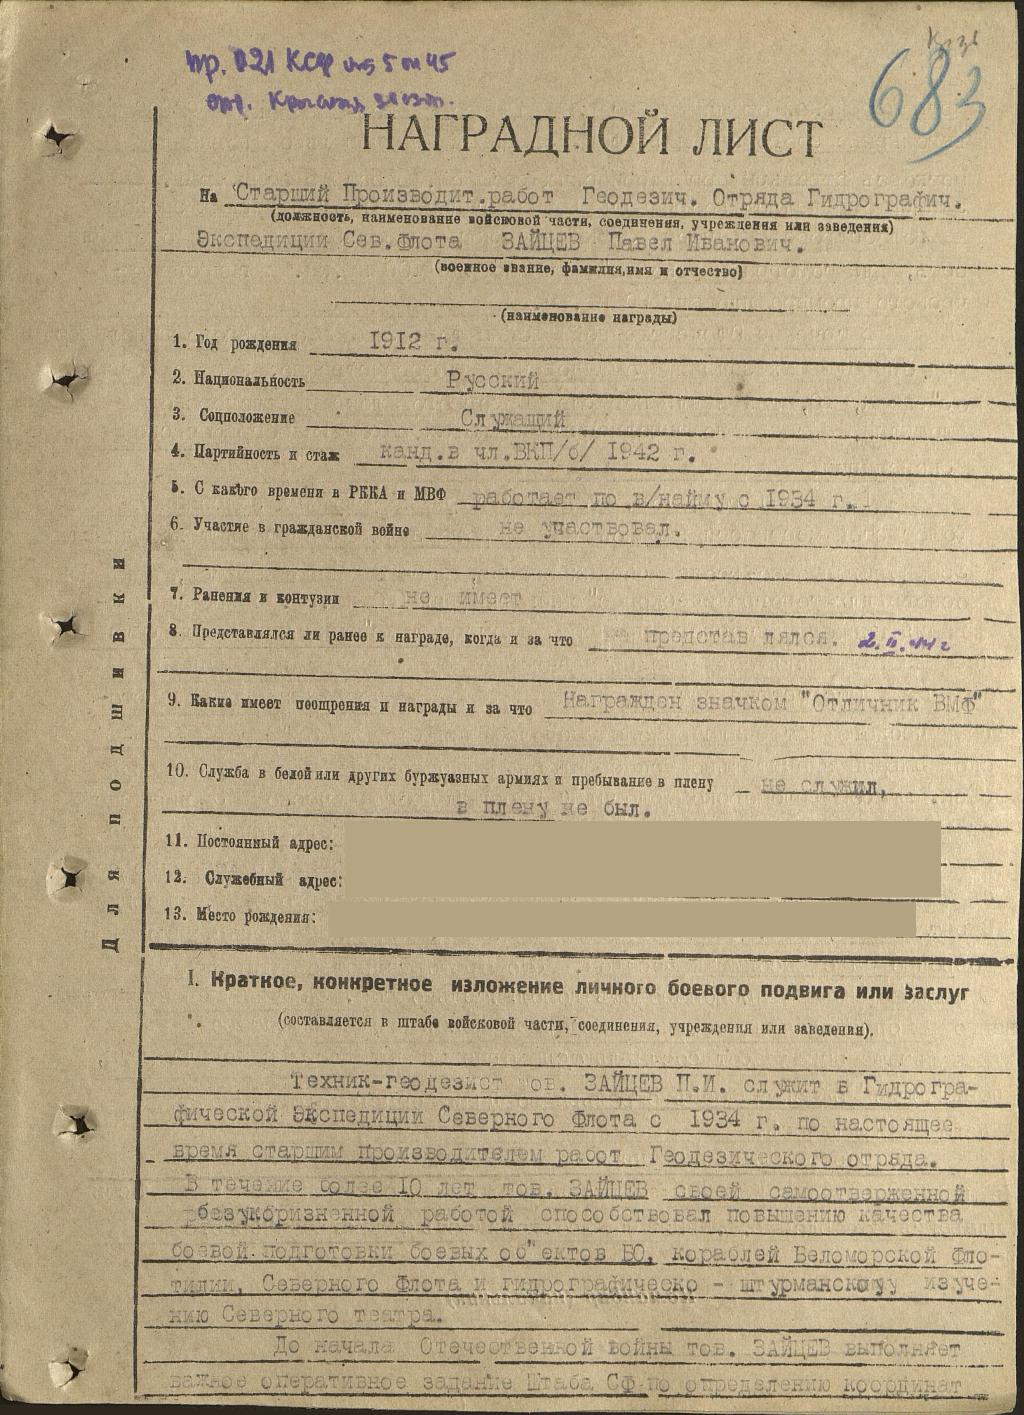 683
пр. 021 КСФ из 5
орд. Красная звезд.
НАГРАДНОЙ ЛИСТ
На Старший Производит.работ Геодезич. Отряда Гидрографич.
(должность, наименование войсковой части, соединения, учреждения или заведения)
Экспедиции Сев.Флота ЗАЙЦЕВ Павел Иванович.
(военное звание, фамилия, имя и отчество)
(наименование награды)
1. Год рождения 1912 г.
2. Национальность Русский
3. Соцположение Служащий
4. Партийность и стаж канд.в чл.ВКП/б/ 1942 г.
5. С какого времени в РККА и МВФ работает по в/найму с 1934 г.
6. Участие в гражданской войне не участвовал.
7. Ранения и контузии не имеет
8. Представлялся ли ранее к награде, когда и за что не представлялся.
9. Какие имеет поощрения и награды и за что Награжден значком "Отличник ВМФ"
10. Служба в белой или других буржуазных армиях и пребывание в плену не служил,
в плену не был.
11. Постоянный адрес:
12. Служебный адрес:
13. Место рождения:
Для подшивки
I. Краткое, конкретное изложение личного боевого подвига или заслуг
(составляется в штабе войсковой части, соединения, учреждения или заведения).
Техник-геодезист тов. ЗАЙЦЕВ П.И. служит в Гидрогра-
фической Экспедиции Северного Флота с 1934 г. по настоящее
время старшим производителем работ Геодезического отряда.
В течение более 10 лет тов. ЗАЙЦЕВ своей самоотверженной
безукоризненной работой способствовал повышению качества
боевой подготовки боевых об"ектов БО, кораблей Беломорской Фло-
тилии, Северного Флота и гидрографическо - штурманскому изуче-
нию Северного театра.
До начала Отечественной войны тов. ЗАЙЦЕВ выполняет
важное оперативное задание Штаба СФ по определению координат